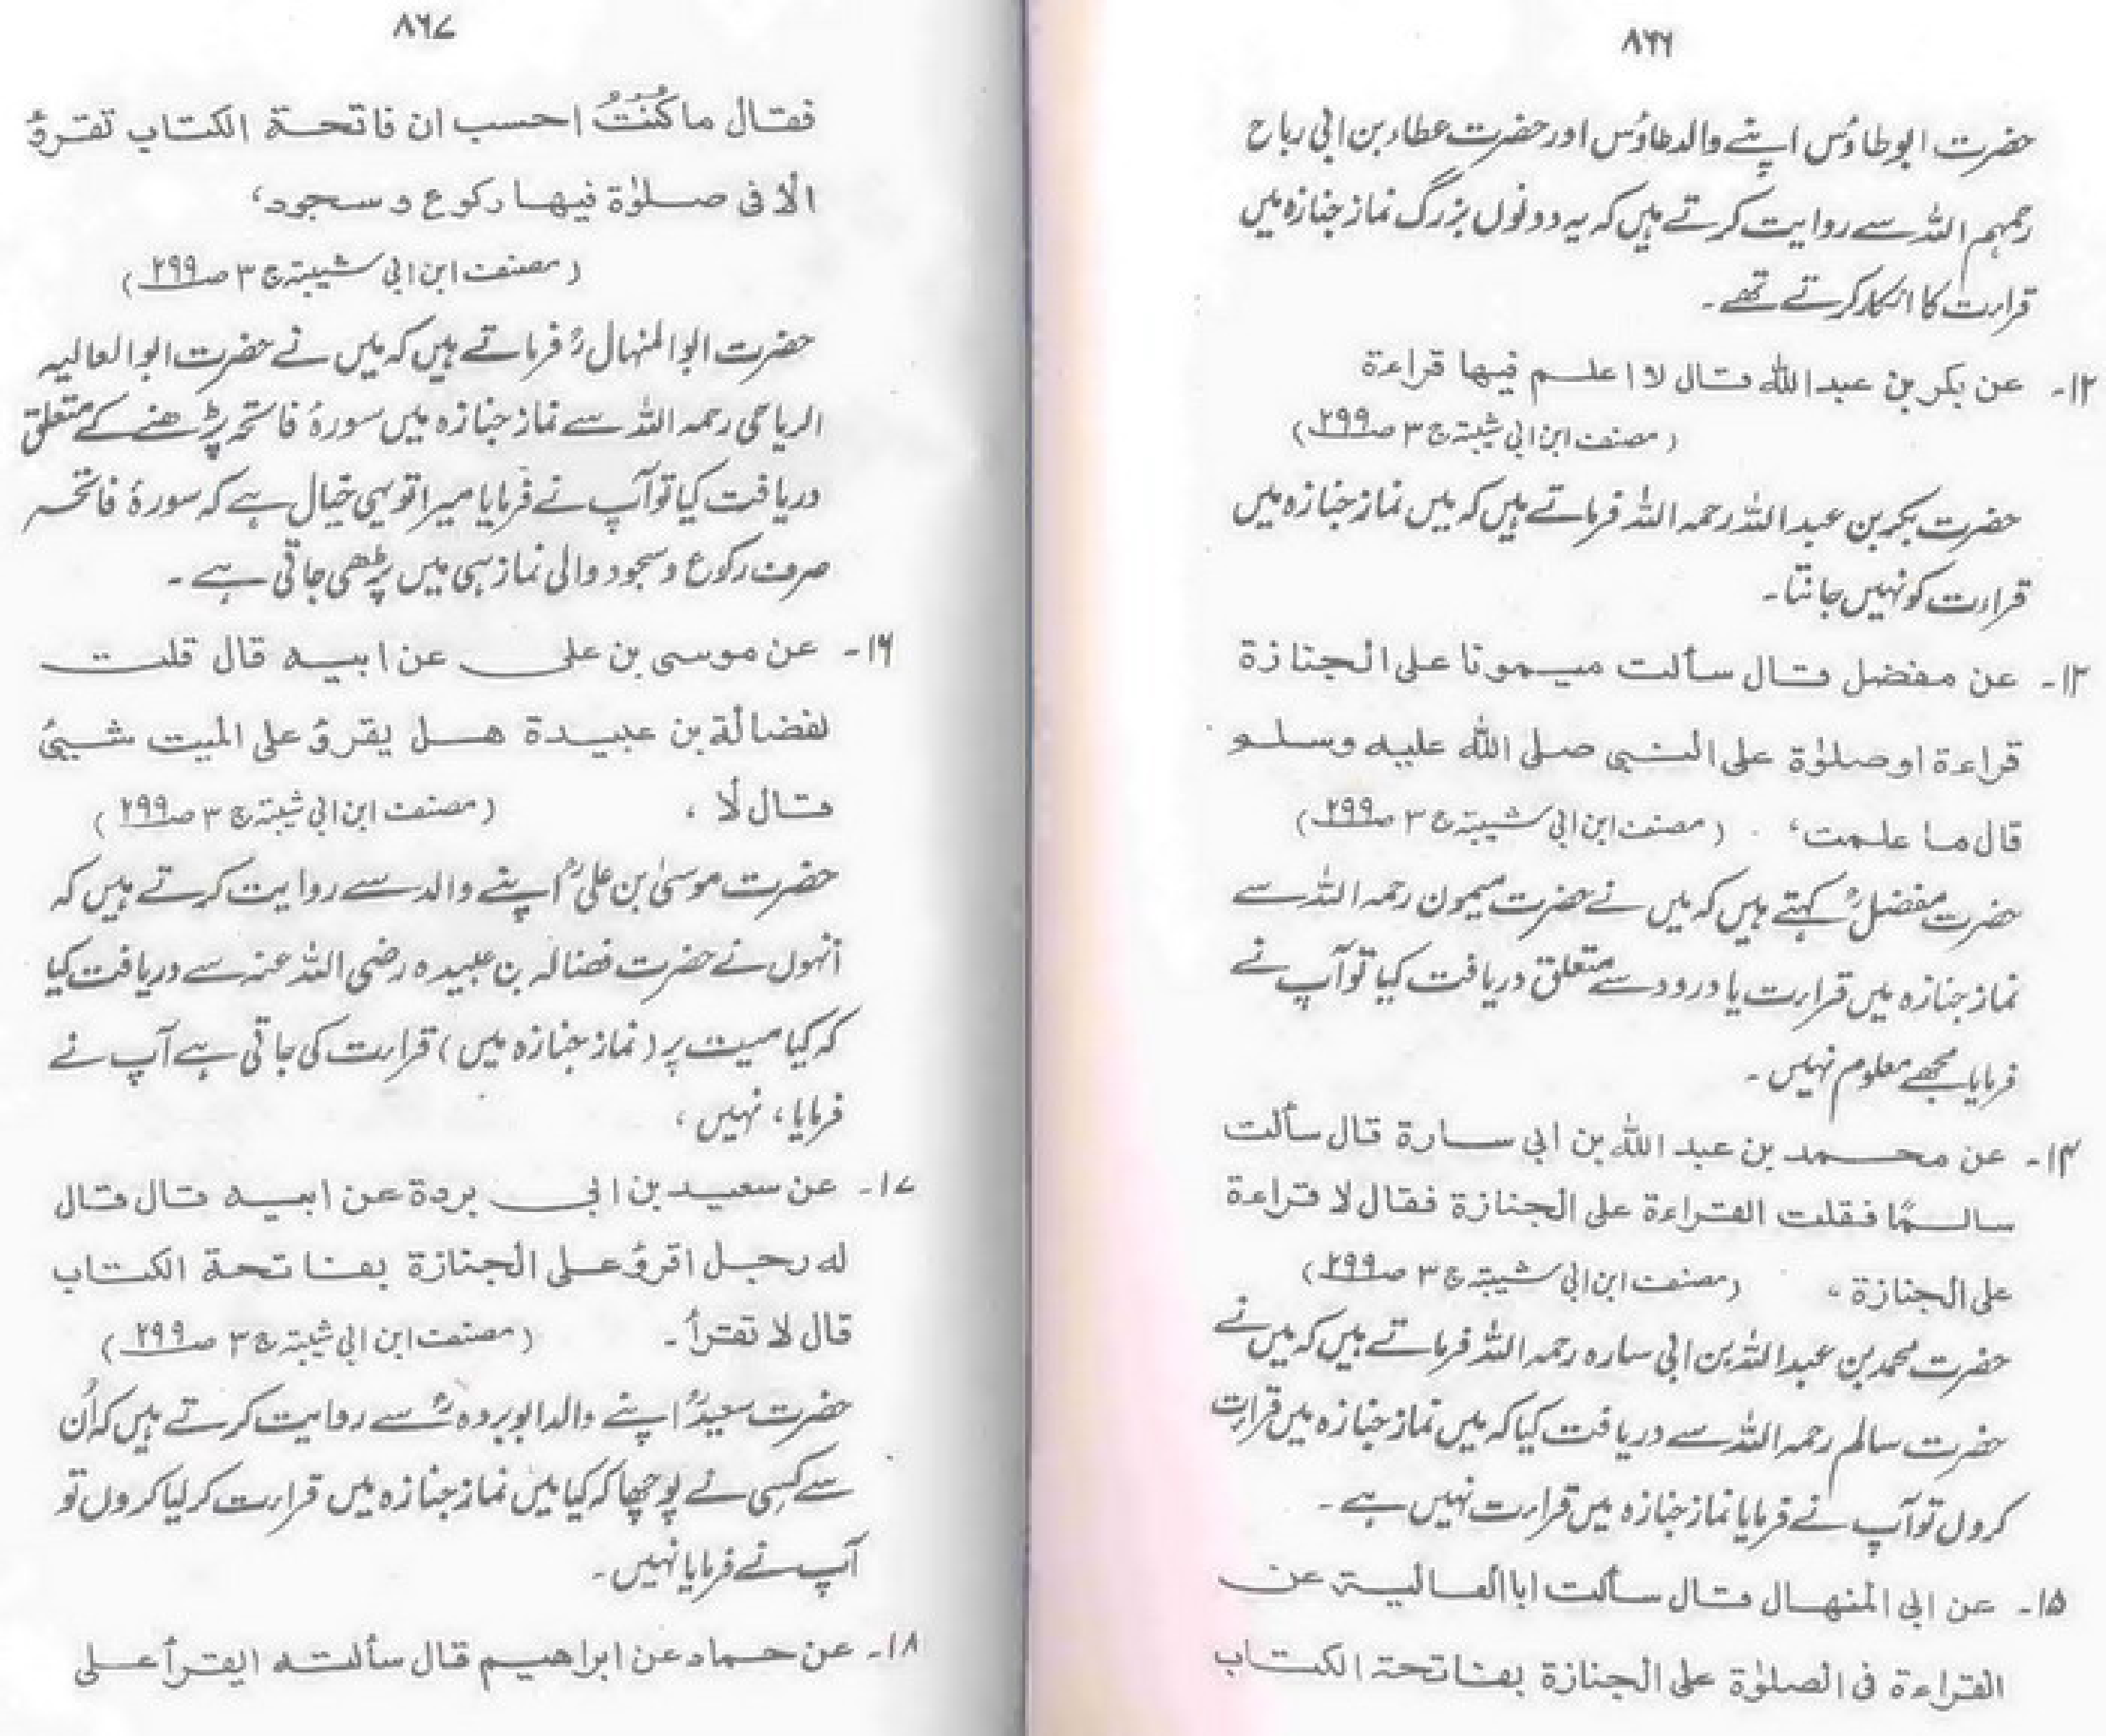 ٨٦٦
حضرت ابوطاؤس اپنے والد طاؤس اور حضرت عطاء بن ابی رباح
رحمہم اللہ سے روایت کرتے ہیں کہ یہ دونوں بزرگ نماز جنازہ میں
قرارت کا انکار کرتے تھے۔
۱۲۔ عن بكر بن عبد الله قال لا اعلم فيها قراءة
(مصنف ابن ابی شیبۃ ج ۳ ص ۲۹۹)
حضرت بکر بن عبداللہ رحمہ اللہ فرماتے ہیں کہ میں نماز جنازہ میں
قرارت کو نہیں جانتا۔
۱۳۔ عن مفضل قال سألت ميمونا على الجنازة
قراءة او صلوٰة على النبي صلى الله عليه وسلم
قال ما علمت، (مصنف ابن ابی شیبۃ ج ۳ ص ۲۹۹)
حضرت مفضلؒ کہتے ہیں کہ میں نے حضرت میمون رحمہ اللہ سے
نماز جنازہ میں قرارت یا درود سے متعلق دریافت کیا تو آپ نے
فرمایا مجھے معلوم نہیں۔
۱۴۔ عن محمد بن عبد الله بن ابي سارة قال سألت
سالمًا فقلت القراءة على الجنازة فقال لا قراءة
على الجنازة، (مصنف ابن ابی شیبۃ ج ۳ ص ۲۹۹)
حضرت محمد بن عبداللہ بن ابی سارہ رحمہ اللہ فرماتے ہیں کہ میں نے
حضرت سالم رحمہ اللہ سے دریافت کیا کہ میں نماز جنازہ میں قرارت
کروں تو آپ نے فرمایا نماز جنازہ میں قرارت نہیں ہے۔
۱۵۔ عن ابي المنهال قال سألت ابا العالية عن
القراءة في الصلوٰة على الجنازة بفاتحة الكتاب
٨٦٧
فقال ما كُنْتُ احسب ان فاتحة الكتاب تقرؤ
الا فى صلوٰة فيها ركوع و سجود،
(مصنف ابن ابی شیبۃ ج ۳ ص ۲۹۹)
حضرت ابوالمنہالؒ فرماتے ہیں کہ میں نے حضرت ابوالعالیہ
الریاحی رحمہ اللہ سے نماز جنازہ میں سورۂ فاتحہ پڑھنے کے متعلق
دریافت کیا تو آپ نے فرمایا میرا تو یہی خیال ہے کہ سورۂ فاتحہ
صرف رکوع و سجود والی نماز ہی میں پڑھی جاتی ہے۔
۱۶۔ عن موسى بن على عن ابيه قال قلت
لفضالة بن عبيدة هل يقرؤ على الميت شيئ
قال لا، (مصنف ابن ابی شیبۃ ج ۳ ص ۲۹۹)
حضرت موسیٰ بن علیؒ اپنے والد سے روایت کرتے ہیں کہ
انہوں نے حضرت فضالہ بن عبیدہ رضی اللہ عنہ سے دریافت کیا
کہ کیا میت پر (نماز جنازہ میں) قرارت کی جاتی ہے آپ نے
فرمایا، نہیں،
۱۷۔ عن سعيد بن ابى بردة عن ابيه قال قال
له رجل اقرؤ على الجنازة بفاتحة الكتاب
قال لا تقرأ۔ (مصنف ابن ابی شیبۃ ج ۳ ص ۲۹۹)
حضرت سعیدؒ اپنے والد ابوبردہؒ سے روایت کرتے ہیں کہ اُن
سے کسی نے پوچھا کہ کیا میں نماز جنازہ میں قرارت کر لیا کروں تو
آپ نے فرمایا نہیں۔
۱۸۔ عن حماد عن ابراهيم قال سألته ايقرأ على